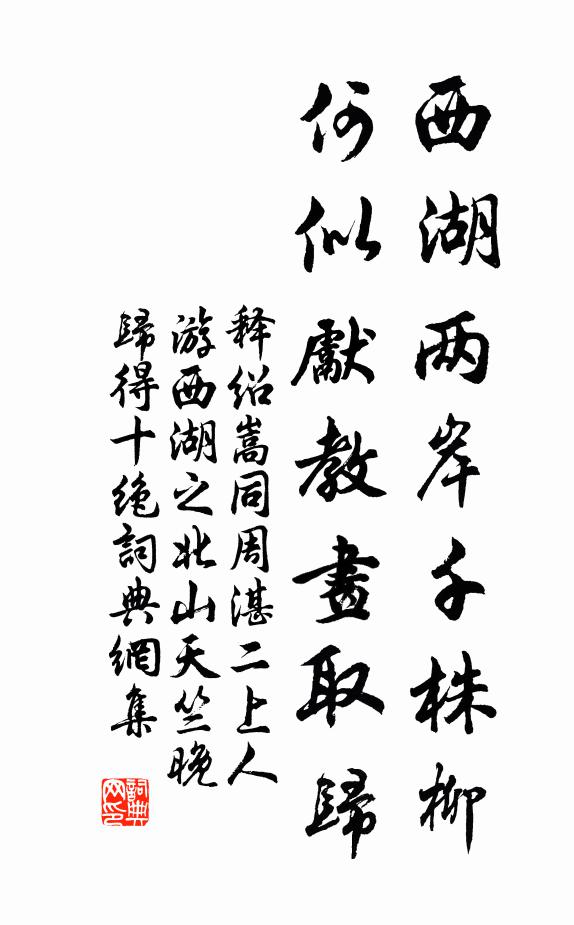 西湖两岸千株柳
何似獻教畫取歸
释绍嵩同周湛二上人
游西湖之北山天竺晚
歸得十绝詞典網集
詞典
网印